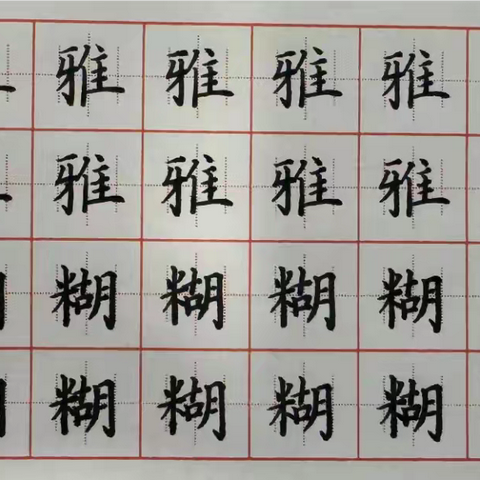 雅 雅 雅 雅
雅 雅 雅 雅
糊 糊 糊 糊
糊 糊 糊 糊